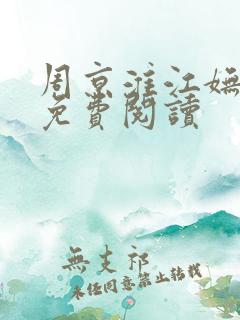 周京淮江嫵
免費閱讀
無支祁
未经同意禁止转载